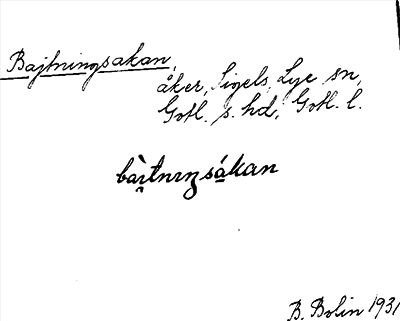 Bajtningsakan,
åker, Sigels, Lye sn,
Gotl. s. hd, Gotl. l.
bài̯tnıŋsákan
B. Bolin 1931